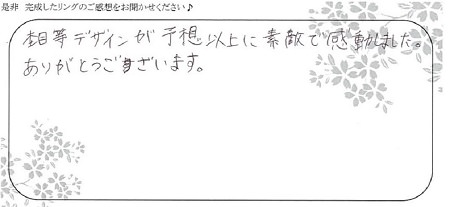 是非 完成したリングのご感想をお聞かせください♪
杢目デザインが予想以上に素敵で感動しました。
ありがとうございます。